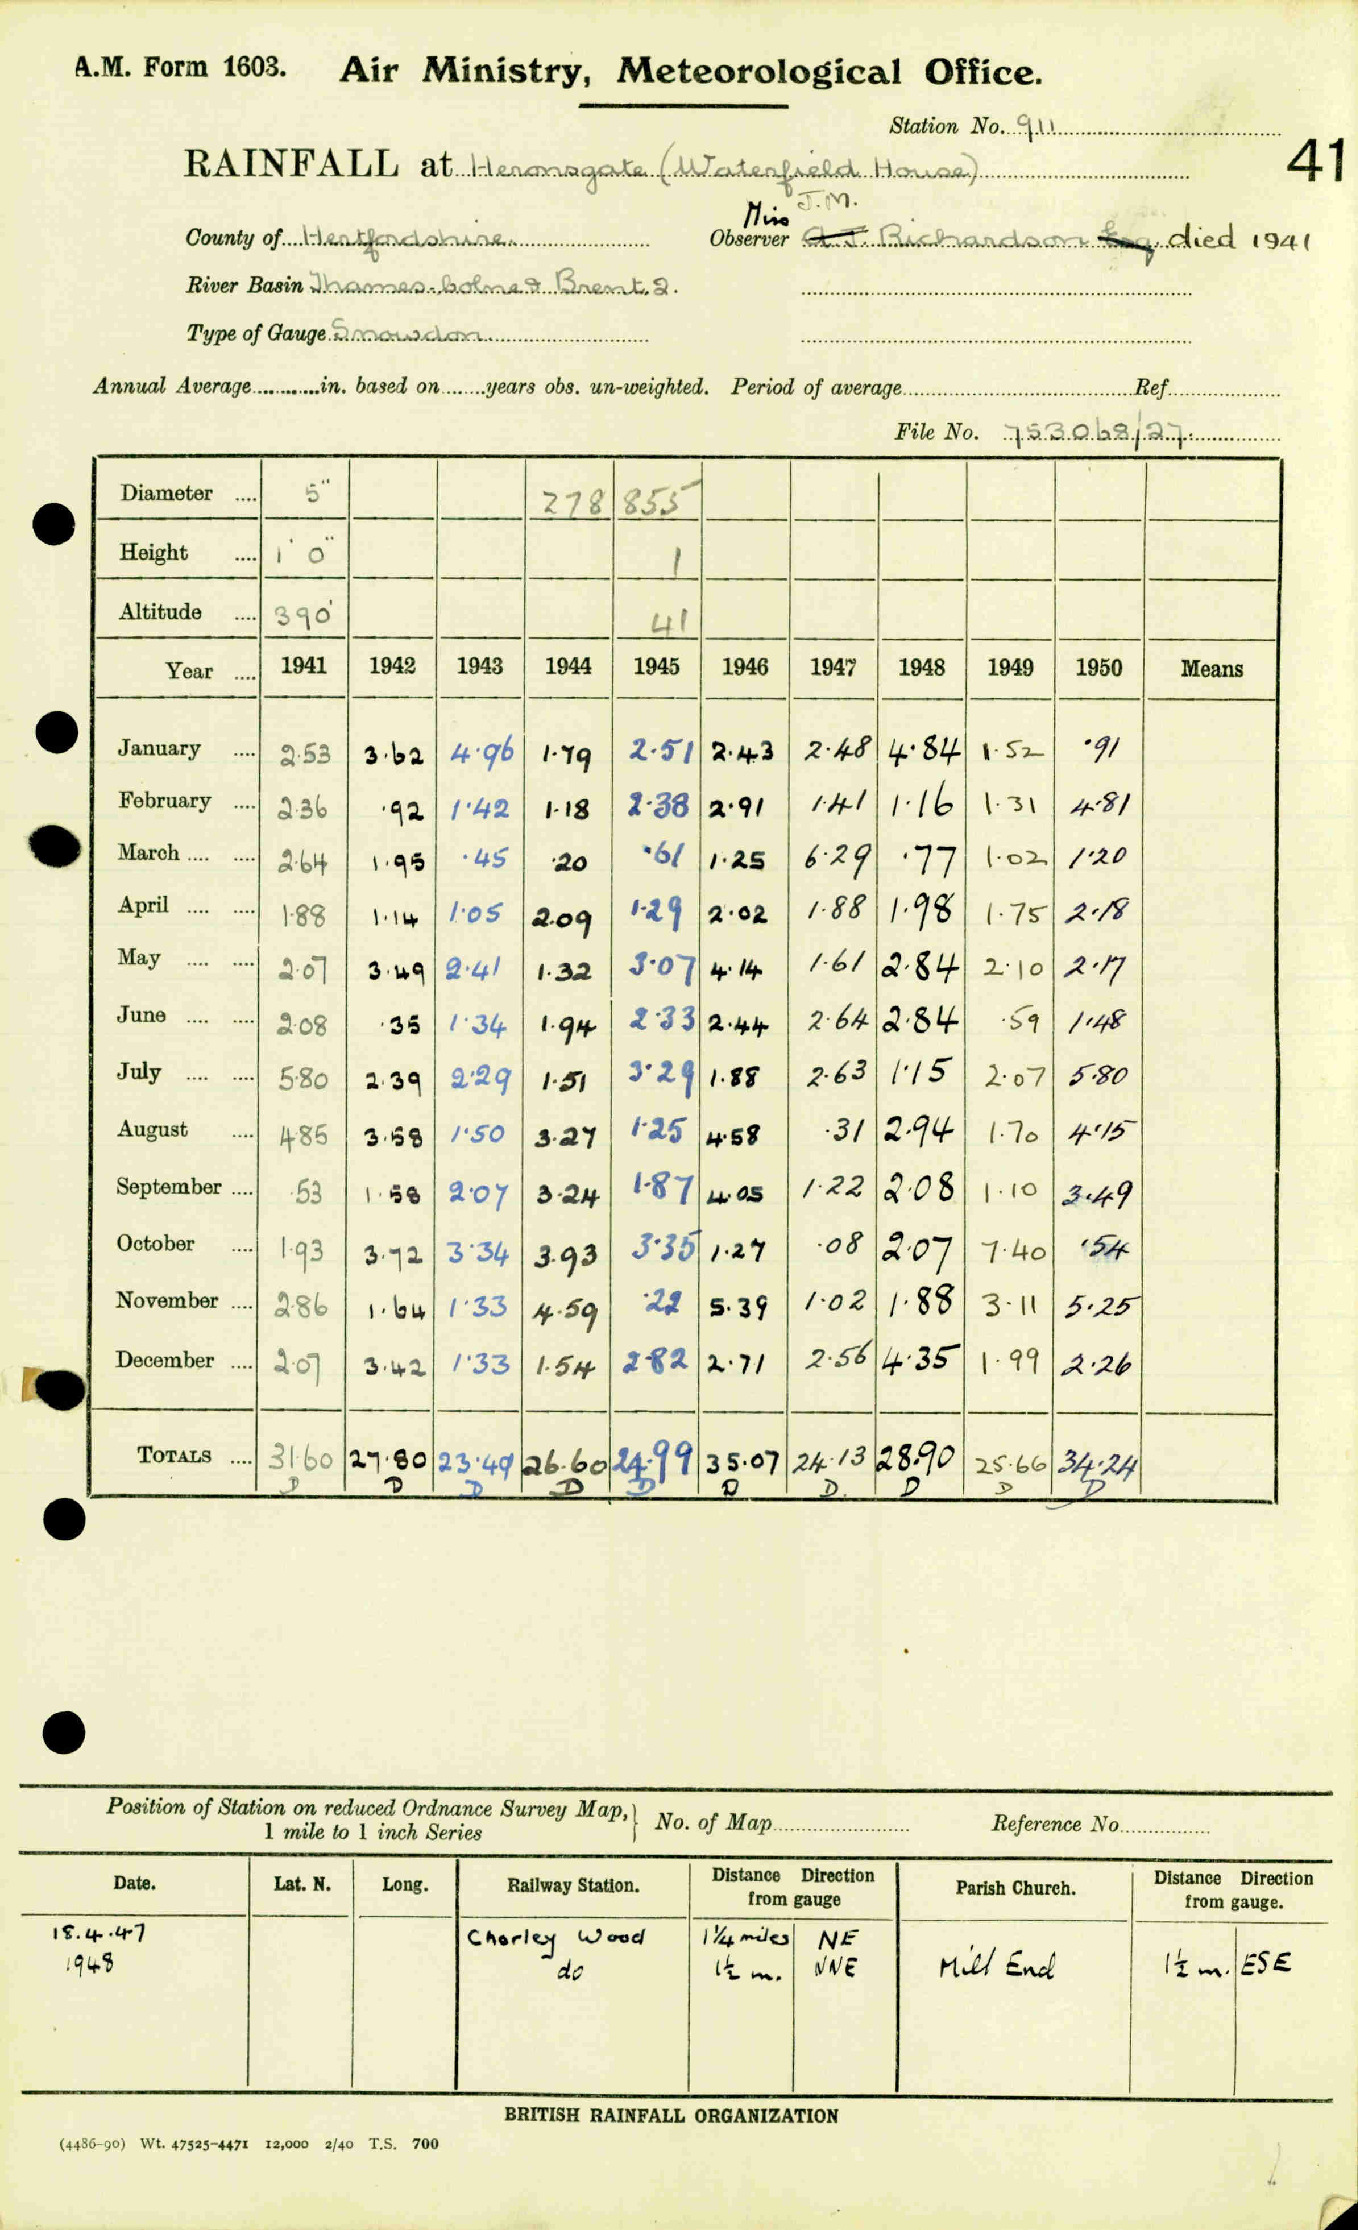 A.M. Form 1603. Air Ministry, Meteorological Office.
Station No. 911
41
RAINFALL at Heronsgate (Waterfield House)
J.M.
Miss
County of Hertfordshire. Observer A.J. Richardson Esq. died 1941
River Basin Thames. Colne & Brent. 2.
Type of Gauge Snowdon
Annual Average............in. based on........years obs. un-weighted. Period of average........Ref........
File No. 753068/27.
Diameter .... 5" 278 855
Height .... 1' 0" 1
Altitude .... 390' 41
Year .... 1941 1942 1943 1944 1945 1946 1947 1948 1949 1950 Means
January .... 2.53 3.62 4.96 1.79 2.51 2.43 2.48 4.84 1.52 .91
February .... 2.36 .92 1.42 1.18 2.38 2.91 1.41 1.16 1.31 4.81
March .... .... 2.64 1.95 .45 .20 .61 1.25 6.29 .77 1.02 1.20
April .... .... 1.88 1.14 1.05 2.09 1.29 2.02 1.88 1.98 1.75 2.18
May .... .... 2.07 3.49 2.41 1.32 3.07 4.14 1.61 2.84 2.10 2.17
June .... .... 2.08 .35 1.34 1.94 2.33 2.44 2.64 2.84 .59 1.48
July .... .... 5.80 2.39 2.29 1.51 3.29 1.88 2.63 1.15 2.07 5.80
August .... 4.85 3.58 1.50 3.27 1.25 4.58 .31 2.94 1.70 4.15
September .... .53 1.58 2.07 3.24 1.87 4.05 1.22 2.08 1.10 3.49
October .... 1.93 3.72 3.34 3.93 3.35 1.27 .08 2.07 7.40 .54
November .... 2.86 1.64 1.33 4.59 .22 5.39 1.02 1.88 3.11 5.25
December .... 2.07 3.42 1.33 1.54 2.82 2.71 2.56 4.35 1.99 2.26
TOTALS .... 31.60 27.80 23.49 26.60 24.99 35.07 24.13 28.90 25.66 34.24
D D D D D D D. D D D
Position of Station on reduced Ordnance Survey Map, } No. of Map........ Reference No........
1 mile to 1 inch Series
Date. Lat. N. Long. Railway Station. Distance Direction from gauge Parish Church. Distance Direction from gauge.
18.4.47 Chorley Wood 1¼ miles NE
1948 do 1½ m. NNE Mill End 1½ m. ESE
BRITISH RAINFALL ORGANIZATION
(4486-90) Wt. 47525-4471 12,000 2/40 T.S. 700